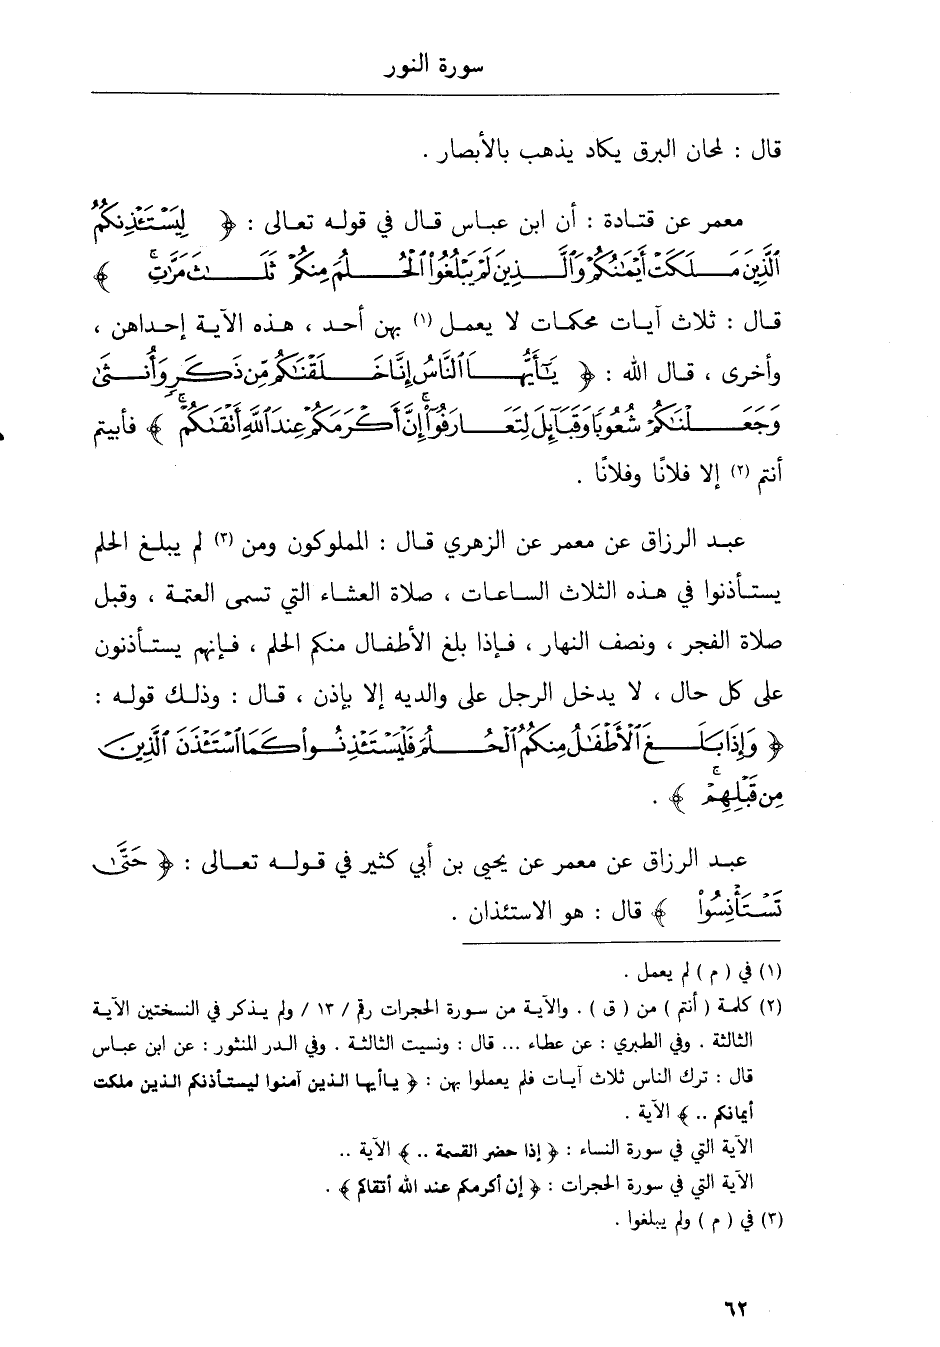 سورة النور
قال : لمحان البرق يكاد يذهب بالأبصار .
معمر عن قتادة : أن ابن عباس قال في قوله تعالى : ﴿ لِيَسْتَـْٔذِنكُمُ
ٱلَّذِينَ مَلَكَتْ أَيْمَٰنُكُمْ وَٱلَّذِينَ لَمْ يَبْلُغُوا۟ ٱلْحُلُمَ مِنكُمْ ثَلَٰثَ مَرَّٰتٍۚ ﴾
قال : ثلاث آيات محكمات لا يعمل (١) بهن أحد ، هذه الآية إحداهن ،
وأخرى ، قال الله : ﴿ يَٰٓأَيُّهَا ٱلنَّاسُ إِنَّا خَلَقْنَٰكُم مِّن ذَكَرٍ وَأُنثَىٰ
وَجَعَلْنَٰكُمْ شُعُوبًا وَقَبَآئِلَ لِتَعَارَفُوٓا۟ۚ إِنَّ أَكْرَمَكُمْ عِندَ ٱللَّهِ أَتْقَىٰكُمْۚ ﴾ فأبيتم
أنتم (٢) إلا فلانًا وفلانًا .
عبد الرزاق عن معمر عن الزهري قال : المملوكون ومن (٣) لم يبلغ الحلم
يستأذنوا في هذه الثلاث الساعات ، صلاة العشاء التي تسمى العتمة ، وقبل
صلاة الفجر ، ونصف النهار ، فإذا بلغ الأطفال منكم الحلم ، فإنهم يستأذنون
على كل حال ، لا يدخل الرجل على والديه إلا بإذن ، قال : وذلك قوله :
﴿ وَإِذَا بَلَغَ ٱلْأَطْفَٰلُ مِنكُمُ ٱلْحُلُمَ فَلْيَسْتَـْٔذِنُوا۟ كَمَا ٱسْتَـْٔذَنَ ٱلَّذِينَ
مِن قَبْلِهِمْۚ ﴾ .
عبد الرزاق عن معمر عن يحيى بن أبي كثير في قوله تعالى : ﴿ حَتَّىٰ
تَسْتَأْنِسُوا۟ ﴾ قال : هو الاستئذان .
(١) في ( م ) لم يعمل .
(٢) كلمة ( أنتم ) من ( ق ) . والآية من سورة الحجرات رقم / ١٣ / ولم يذكر في النسختين الآية
الثالثة . وفي الطبري : عن عطاء ... قال : ونسيت الثالثة . وفي الدر المنثور : عن ابن عباس
قال : ترك الناس ثلاث آيات فلم يعملوا بهن : ﴿ ياأيها الذين آمنوا ليستأذنكم الذين ملكت
أيمانكم .. ﴾ الآية .
الآية التي في سورة النساء : ﴿ إذا حضر القسمة .. ﴾ الآية ..
الآية التي في سورة الحجرات : ﴿ إن أكرمكم عند الله أتقاكم ﴾ .
(٣) في ( م ) ولم يبلغوا .
٦٢